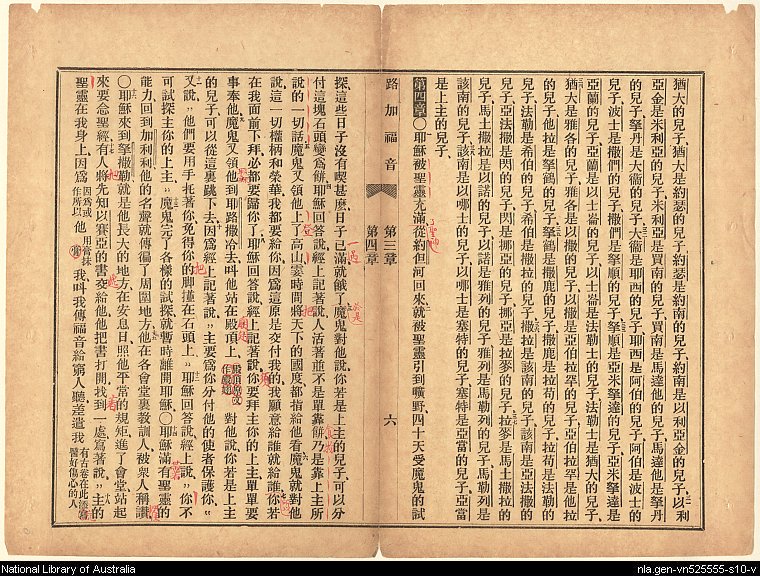 猶大的兒子、猶大是約瑟的兒子、約瑟是約南的兒子、約南是以利亞金的兒子、以利
亞金是米利亞的兒子、米利亞是買南的兒子、買南是馬達他的兒子、馬達他是拏丹
的兒子、拏丹是大衞的兒子、大衞是耶西的兒子、耶西是阿伯的兒子、阿伯是波士的
兒子、波士是撒們的兒子、撒們是拏順的兒子、拏順是亞米拏達的兒子、亞米拏達是
亞蘭的兒子、亞蘭是以士崙的兒子、以士崙是法勒士的兒子、法勒士是猶大的兒子、
猶大是雅各的兒子、雅各是以撒的兒子、以撒是亞伯拉罕的兒子、亞伯拉罕是他拉
的兒子、他拉是拏鶴的兒子、拏鶴是撒鹿的兒子、撒鹿是拉苟的兒子、拉苟是法勒的
兒子、法勒是希伯的兒子、希伯是撒拉的兒子、撒拉是該南的兒子、該南是亞法撒的
兒子、亞法撒是閃的兒子、閃是挪亞的兒子、挪亞是拉麥的兒子、拉麥是馬土撒拉的
兒子、馬土撒拉是以諾的兒子、以諾是雅列的兒子、雅列是馬勒列的兒子、馬勒列是
該南的兒子、該南是以哪士的兒子、以哪士是塞特的兒子、塞特是亞當的兒子、亞當
是上主的兒子、
第四章〇耶穌被聖靈充滿、從約但河回來、就被聖靈引到曠野、四十天受魔鬼的試
路加福音 第三章 第四章 六
探、這些日子沒有喫甚麼、日子已滿就餓了、魔鬼對他說、你若是上主的兒子、可以分
付這塊石頭變爲餅、耶穌回答說、經上記著說、人活著並不是單靠餅、乃是靠上主所
說的一切話、魔鬼又領他上了高山、霎時間將天下的國度都指給他看、魔鬼就對他
說、這一切權柄和榮華、我都要給你、因爲這原是交付我的、我願意給誰就給誰、你若
在我面前下拜、必都要歸你了、耶穌回答說、經上記著說、你要拜主你的上主、單單要
事奉他、魔鬼又領他到耶路撒冷去、叫他站在殿頂上、對他說、你若是上主
的兒子、可以從這裏跳下去、因爲經上記著說、主要爲你分付他的使者保護你、
又說、他們要用手托著你、免得你的脚撞在石頭上、耶穌回答說、經上說、你不
可試探主你的上主、魔鬼完了各樣的試探、就暫時離開耶穌、〇耶穌滿有聖靈的
能力、回到加利利、他的名聲就傳徧了周圍地方、他在各會堂裏教訓人、被衆人稱讚、
〇耶穌來到拏撒勒、就是他長大的地方、在安息日、照他平常的規矩進了會堂、站起
來要念聖經、有人將先知以賽亞的書交給他、他把書打開、找到一處寫著說、主的
聖靈在我身上、因爲 因爲或作所以 他用膏抹我、叫我傳福音給窮人聽、差遣我 有古卷在此添醫好傷心的人
National Library of Australia
nla.gen-vn525555-s10-v